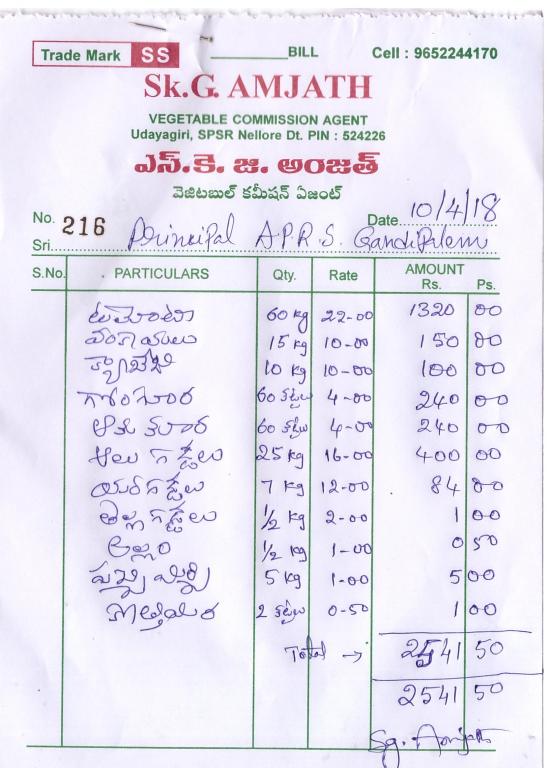 Trade Mark SS ________BILL Cell : 9652244170
Sk.G. AMJATH
VEGETABLE COMMISSION AGENT
Udayagiri, SPSR Nellore Dt. PIN : 524226
ఎస్.కె. జి. అంజత్
వెజిటబుల్ కమీషన్ ఏజంట్
No. 216 Date 10/4/18
Sri Principal A.P.R.S. Gandipalem
S.No. PARTICULARS Qty. Rate AMOUNT Rs. Ps.
టమోటా 60 kg 22-00 1320 00
వంకాయలు 15 kg 10-00 150 00
క్యాబేజి 10 kg 10-00 100 00
గోంకూర 60 కట్టలు 4-00 240 00
ఆకు కూర 60 కట్టలు 4-00 240 00
ఆలు గడ్డలు 25 kg 16-00 400 00
యరగడ్డలు 7 kg 12-00 84 00
తెల్లగడ్డలు 1/2 kg 2-00 1 00
అల్లం 1/2 kg 1-00 0 50
పచ్చి మిర్చి 5 kg 1-00 5 00
కొత్తిమిర 2 కట్టలు 0-50 1 00
Total → 2541 50
2541 50
Sg. Amjath